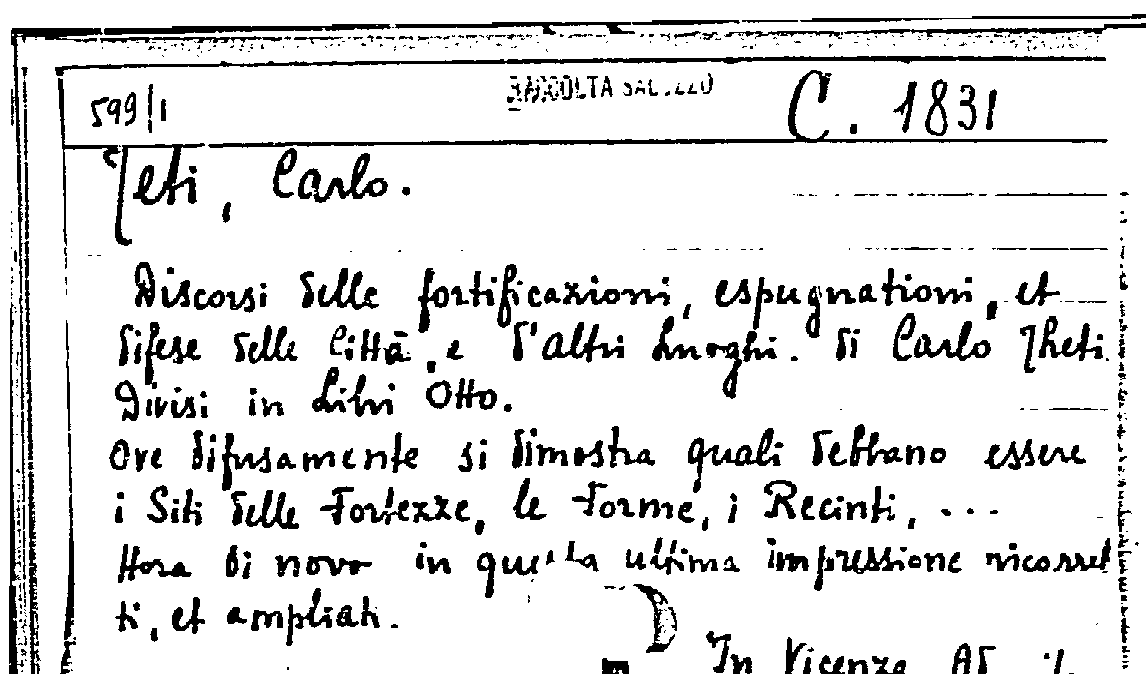 599/1 RACCOLTA SALUZZO C. 1831
Teti, Carlo.
Discorsi delle fortificazioni, espugnationi, et
difese delle Città, e d'altri Luoghi. di Carlo Theti
Divisi in Libri Otto.
Ove difusamente si dimostra quali debbano essere
i Siti delle Fortezze, le Forme, i Recinti, ...
Hora di novo in questa ultima impressione ricorret
ti, et ampliati.
In Vicenza